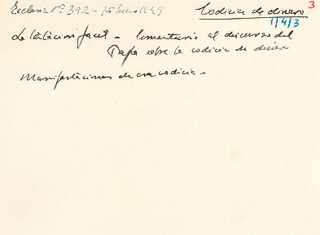 Ecclesia Nº 392 - 15 Enero 1949
Codicia de dinero
3
1/4/3
La tentación fácil - Comentario al discurso del
Papa sobre la codicia de dinero
Manifestaciones de esa codicia -